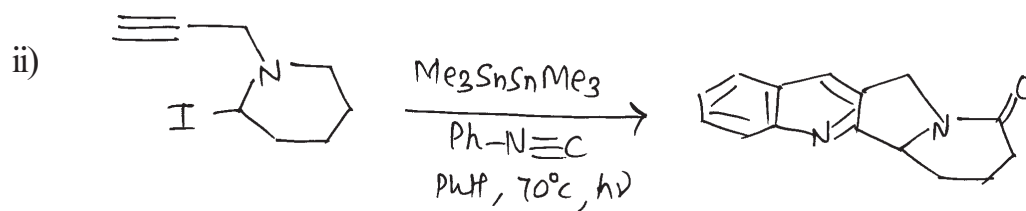 ii)
N
I
Me3SnSnMe3
Ph-N≡C
PhH, 70°c, hν
N
N
O